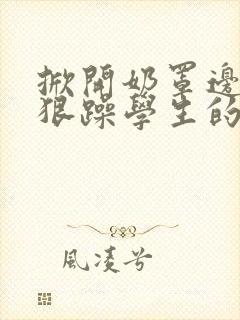 掀開奶罩邊
狠躁學生的
風凌兮